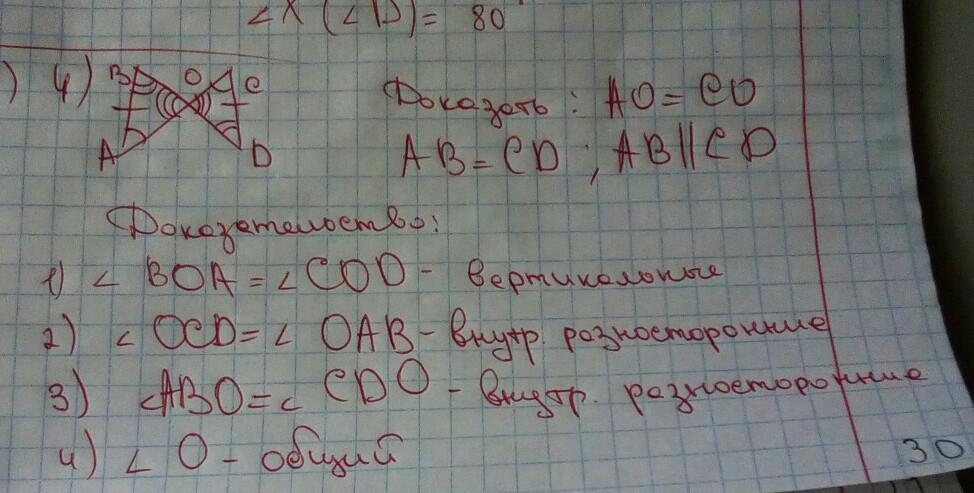 ∠ (∠D) = 80°
) 4) B O C A D Доказать: AO = CO
AB = CD; AB || CD
Доказательство:
1) ∠ BOA = ∠ COD - вертикальные
2) ∠ OCD = ∠ OAB - внутр. разносторонние
3) ∠ABO = ∠ CDO - внутр. разносторонние
4) ∠ O - общий
30